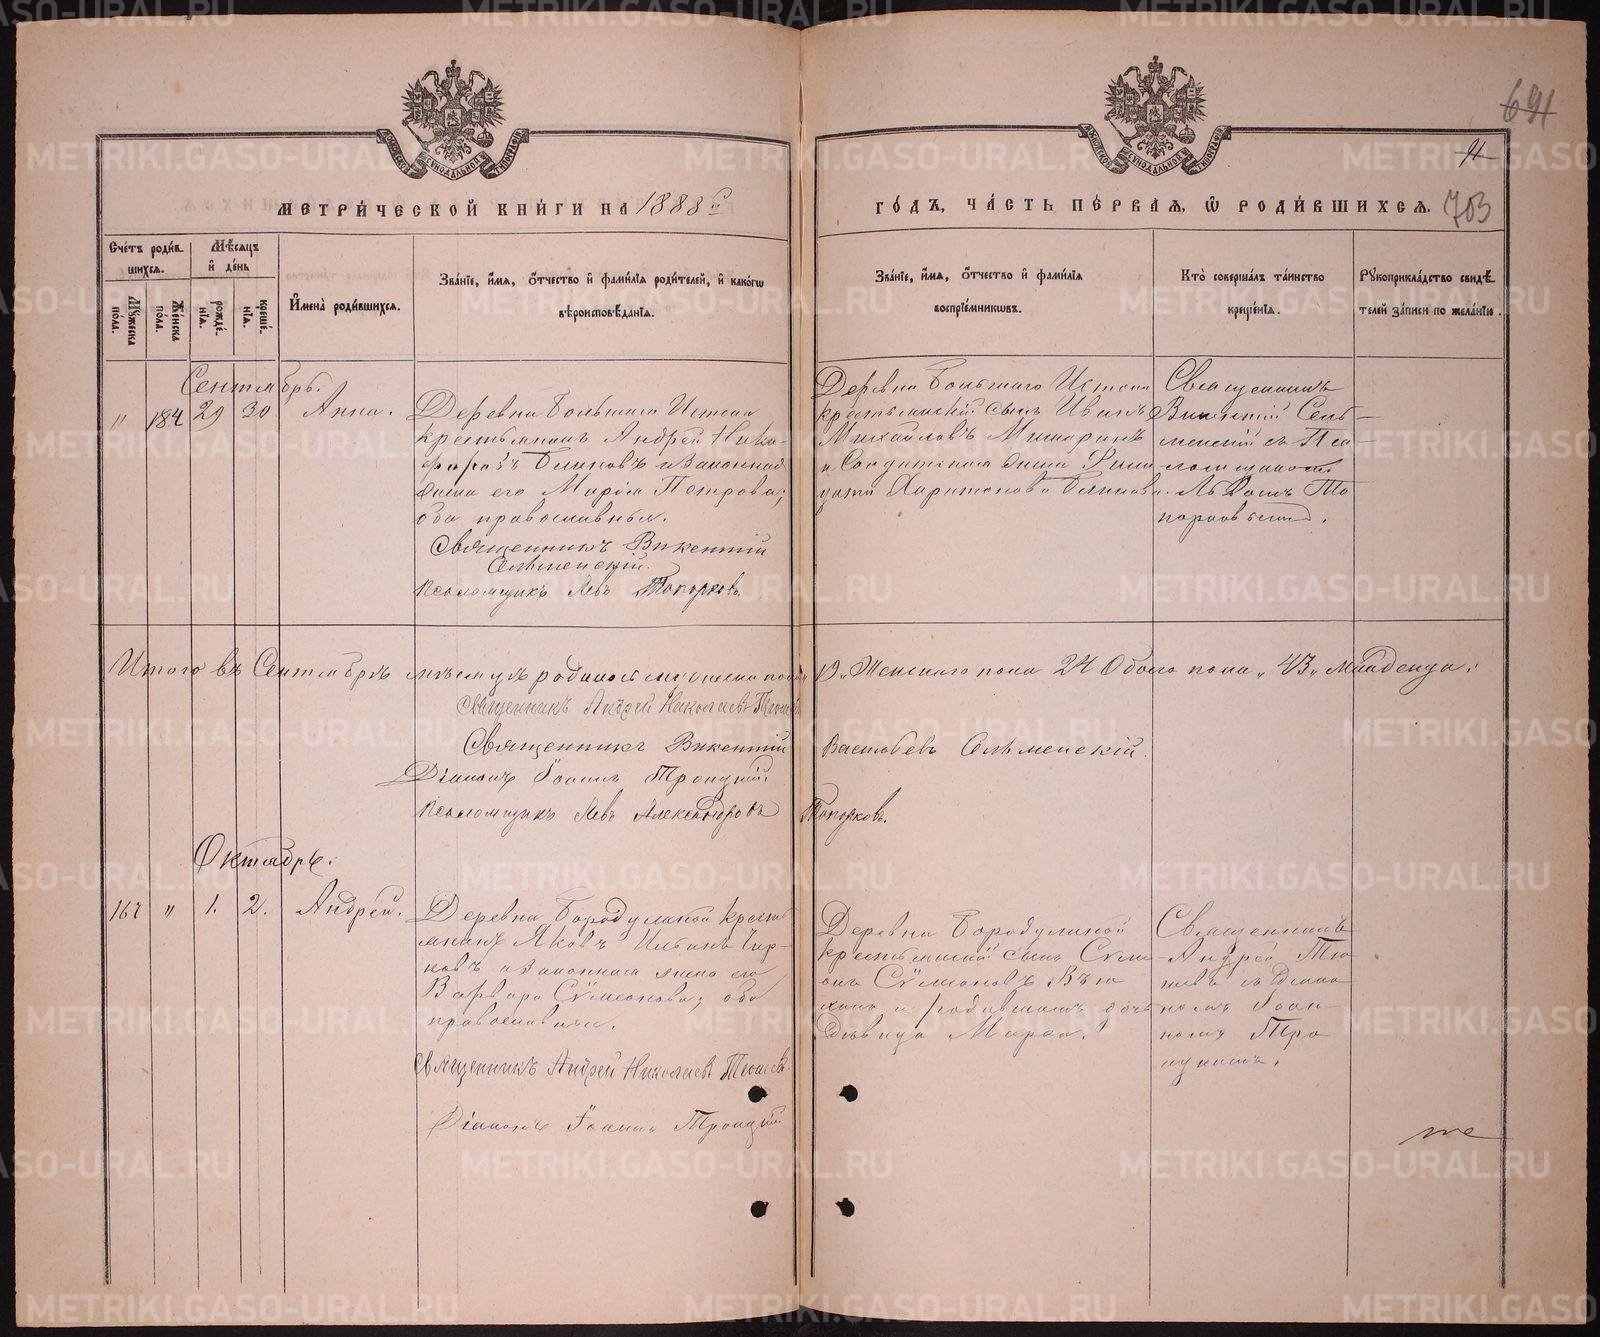 691
91
703
МЕТРИ́ЧЕСКОЙ КНИ́ГИ НА 1888 й
ГО́ДЪ, ЧА́СТЬ ПЕ́РВАЯ, Ѡ РОДИ́ВШИХСЯ.
Сче́тъ роди́в
шихся.
Мѣ́сяцъ
и҆ де́нь
Му́жеска
по́ла.
Же́нска
по́ла.
рожде́
нїя.
креще́
нїя.
И҆мена̀ роди́вшихся.
Зва́нїе, и҆́мя, о҆́тчество и҆ фами́лїя роди́телей, и҆ како́гѡ
вѣроисповѣ́данїя.
Зва́нїе, и҆́мя, о҆́тчество и҆ фами́лїя
воспрїе́мникѡвъ.
Кто̀ соверша́лъ та́инство
креще́нїя.
Рꙋкоприкла́дство свидѣ́
телей за́писи по жела́нїю.
Сентябрь.
" 184 29 30 Анна.
Деревни Большаго Истока
крестьянинъ Андрей Ники-
форовъ Блиновъ и законная
жена его Марѳа Петрова;
оба православные.
Священникъ Викентій
Сельменскій.
Псаломщикъ Левъ Топорковъ.
Деревни Большаго Истока
крестьянскій сынъ Иванъ
Михайловъ Мишаринъ
и Солдатская жена
Харитонова Блинова.
Священникъ
Викентій Сель-
менскій съ Пса-
ломщикомъ
Львомъ То
порковымъ.
Итого въ Сентябрѣ мѣсяцѣ родилось мужеска пола 19, Женскаго пола 24 Обоего пола "43" младенца.
Священникъ Андрей Николаевъ
Священникъ Викентій Васильевъ Сельменскій.
Діаконъ Іоаннъ Троицкій
Псаломщикъ Левъ Александровъ Топорковъ.
Октябрь.
167 " 1. 2. Андрей.
Деревни Бородулиной крестья
нинъ Яковъ Ильинъ Чир-
ковъ и законная жена его
Варвара Сѵмеонова; оба
православные.
Священникъ Андрей Николаевъ
Діаконъ Іоаннъ Троицкій
Деревни Бородулиной
крестьянскій сынъ Сѵме
онъ Сѵмеоновъ
и дочь
Дѣвица Марѳа.
Священникъ
Андрей
съ Діако
номъ Іоан-
номъ Тро
ицкимъ.
METRIKI.GASO-URAL.RU